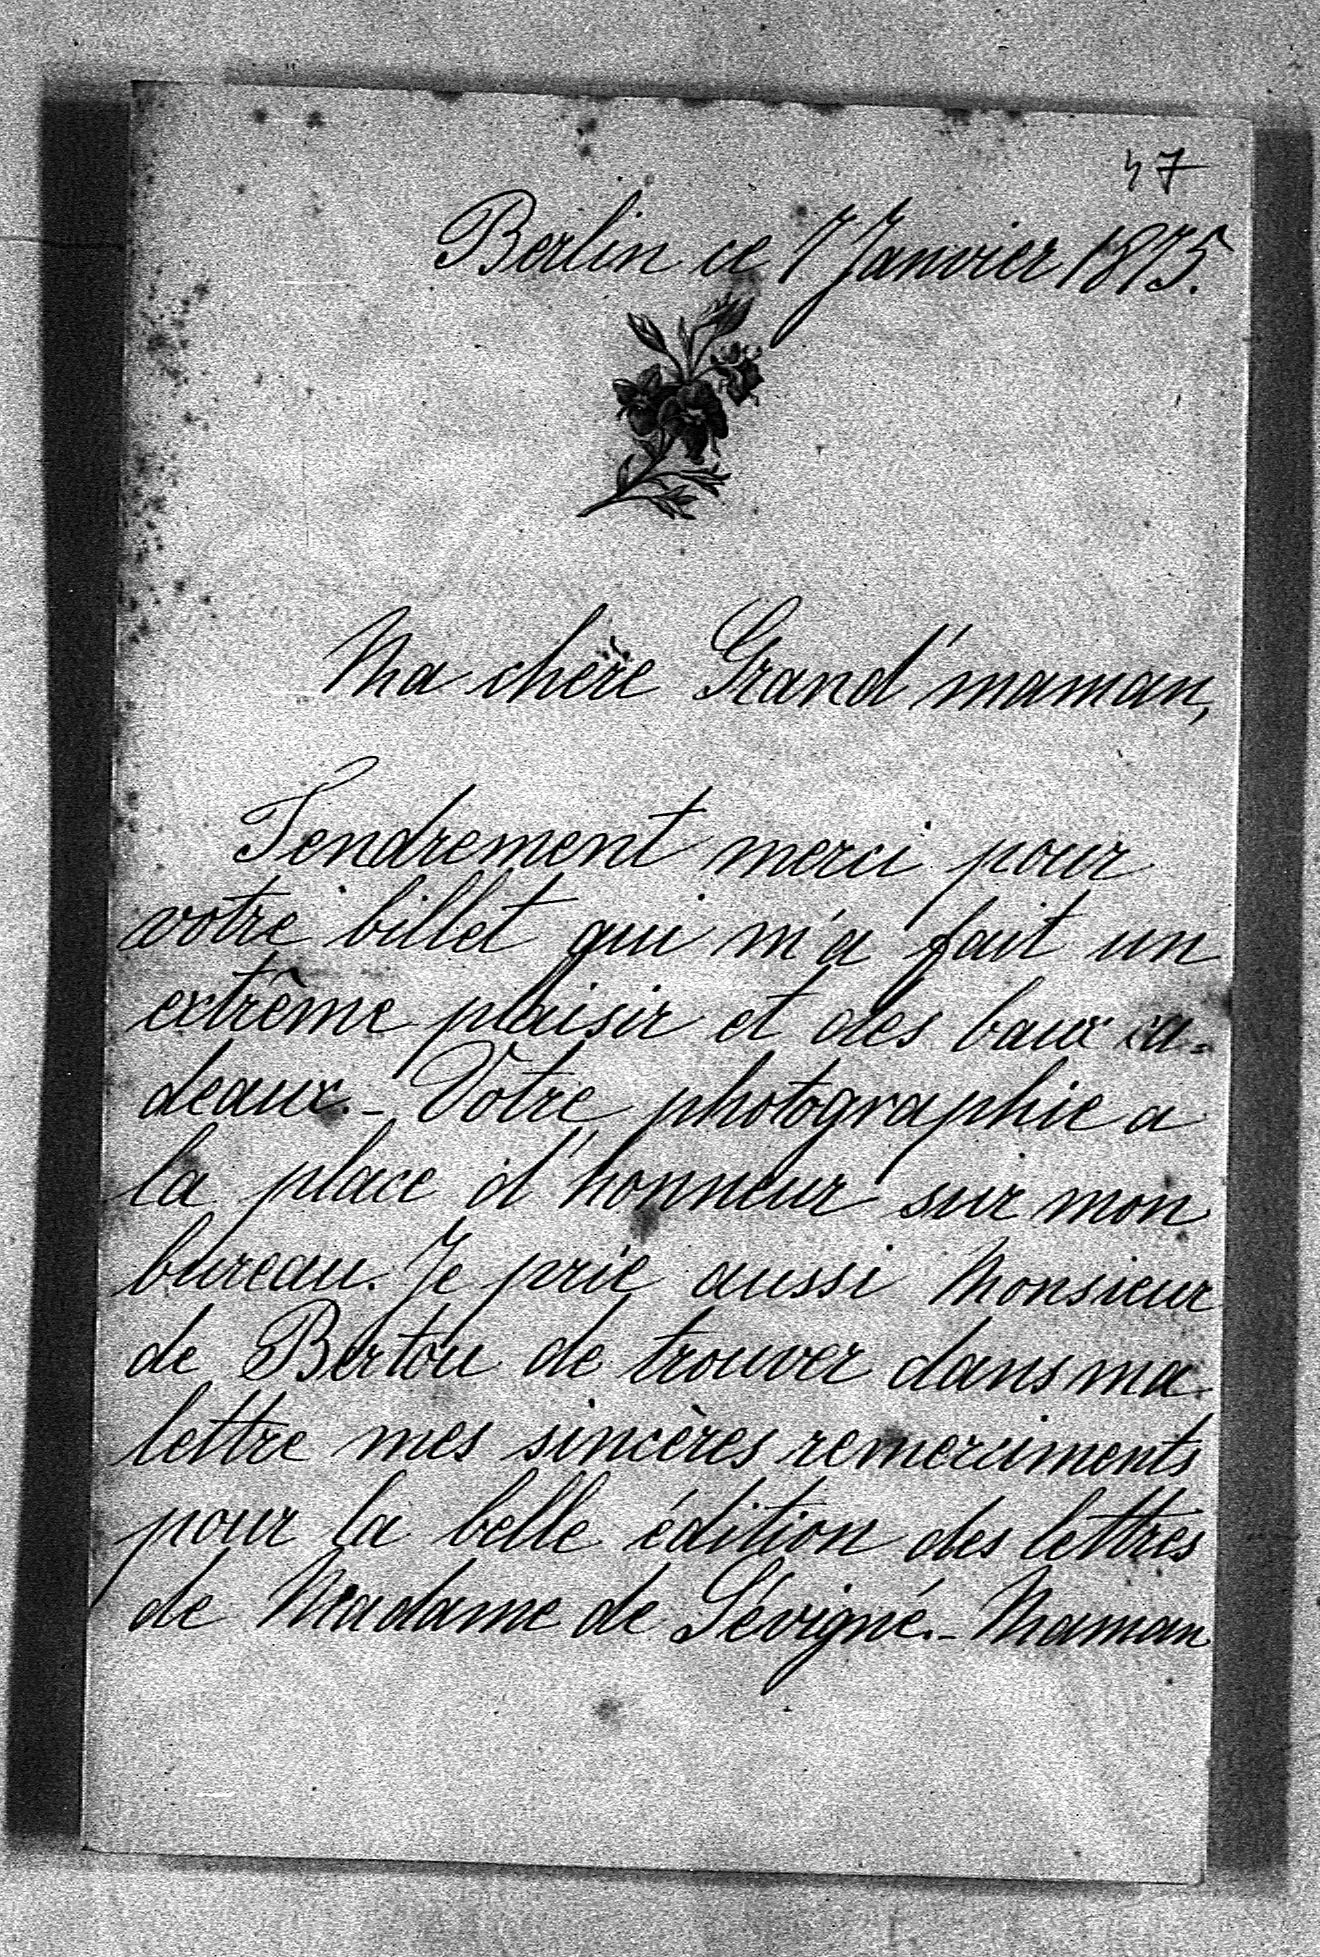 47
Berlin ce 7 Janvier 1875.
Ma chère Grand'maman,
Tendrement merci pour
votre billet qui m'a fait un
extrême plaisir et des baux ca-
deaux. - Votre photographie a
la place d'honneur sur mon
bureau. Je prie aussi Monsieur
de Bertou de trouver dans ma
lettre mes sincères remerciments
pour la belle édition des lettres
de Madame de Sévigné. - Maman